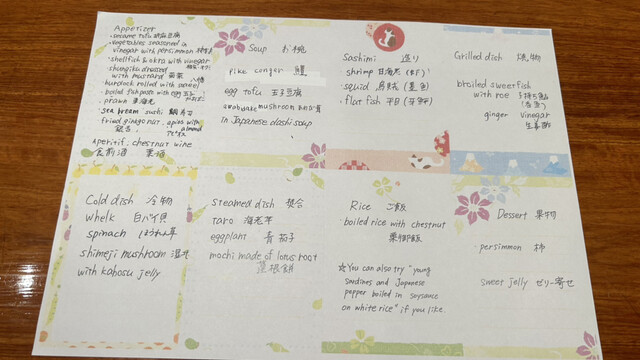 Appetizer
・sesame tofu 胡麻豆腐
・vegetables seasoned in
vinegar with persimmon
・shellfish & okra with vinegar
・shungiku dressed
with mustard
burdock rolled with sweet eel 八幡
・boiled fish paste with egg
・prawn 車海老
・sea bream sushi 鯛寿司
・fried ginkgo nut, apios with almond
銀杏
Aperitif, chestnut wine
食前酒 栗酒
Soup お椀
pike conger 鱧
egg tofu 玉子豆腐
mushroom
in Japanese dashi soup
Sashimi 造り
・shrimp 甘海老
・squid 烏賊
・flat fish 平目
Grilled dish 焼物
broiled sweetfish
with roe 子持ち鮎
ginger vinegar
生姜酢
Cold dish 冷物
whelk 白バイ貝
spinach ほうれん草
shimeji mushroom
with kabosu jelly
steamed dish 焚合
taro 海老芋
eggplant 青茄子
mochi made of lotus root
蓮根餅
Rice ご飯
boiled rice with chestnut
栗御飯
☆You can also try "young
sardines and Japanese
pepper boiled in soysauce
on white rice" if you like.
Dessert 果物
・persimmon 柿
sweet jelly ゼリー寄せ